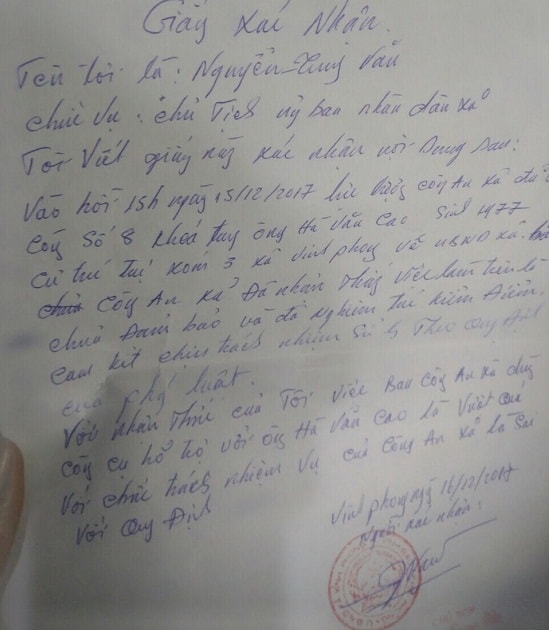 Giấy Xác Nhận.
Tên tôi là: Nguyễn Trung Văn
chức vụ: chủ Tịch uỷ ban nhân dân xã
Tôi Viết giấy này xác nhận nội Dung Sau:
Vào hồi 15h ngày 15/12/2017 lực lượng công An xã
Công Số 8 khoá tay ông Hà Văn Cao Sinh 1977
Cư trú tại xóm 3 xã Vĩnh phong về UBND xã.
Công An xã Đã nhận Thấy Việc làm trên là
chưa Đảm bảo và đã Nghiêm túc kiểm Điểm.
Cam kết chịu trách nhiệm Theo Quy Định
của luật.
Với nhận Thức của Tôi Việc Ban Công An xã dùng
Công cụ hỗ trợ với ông Hà Văn Cao là Vượt quá
Với chức trách nhiệm Vụ của Công An xã là Sai
Với Quy Định
Vĩnh phong ngày 16/12/2017
Người xác nhận: